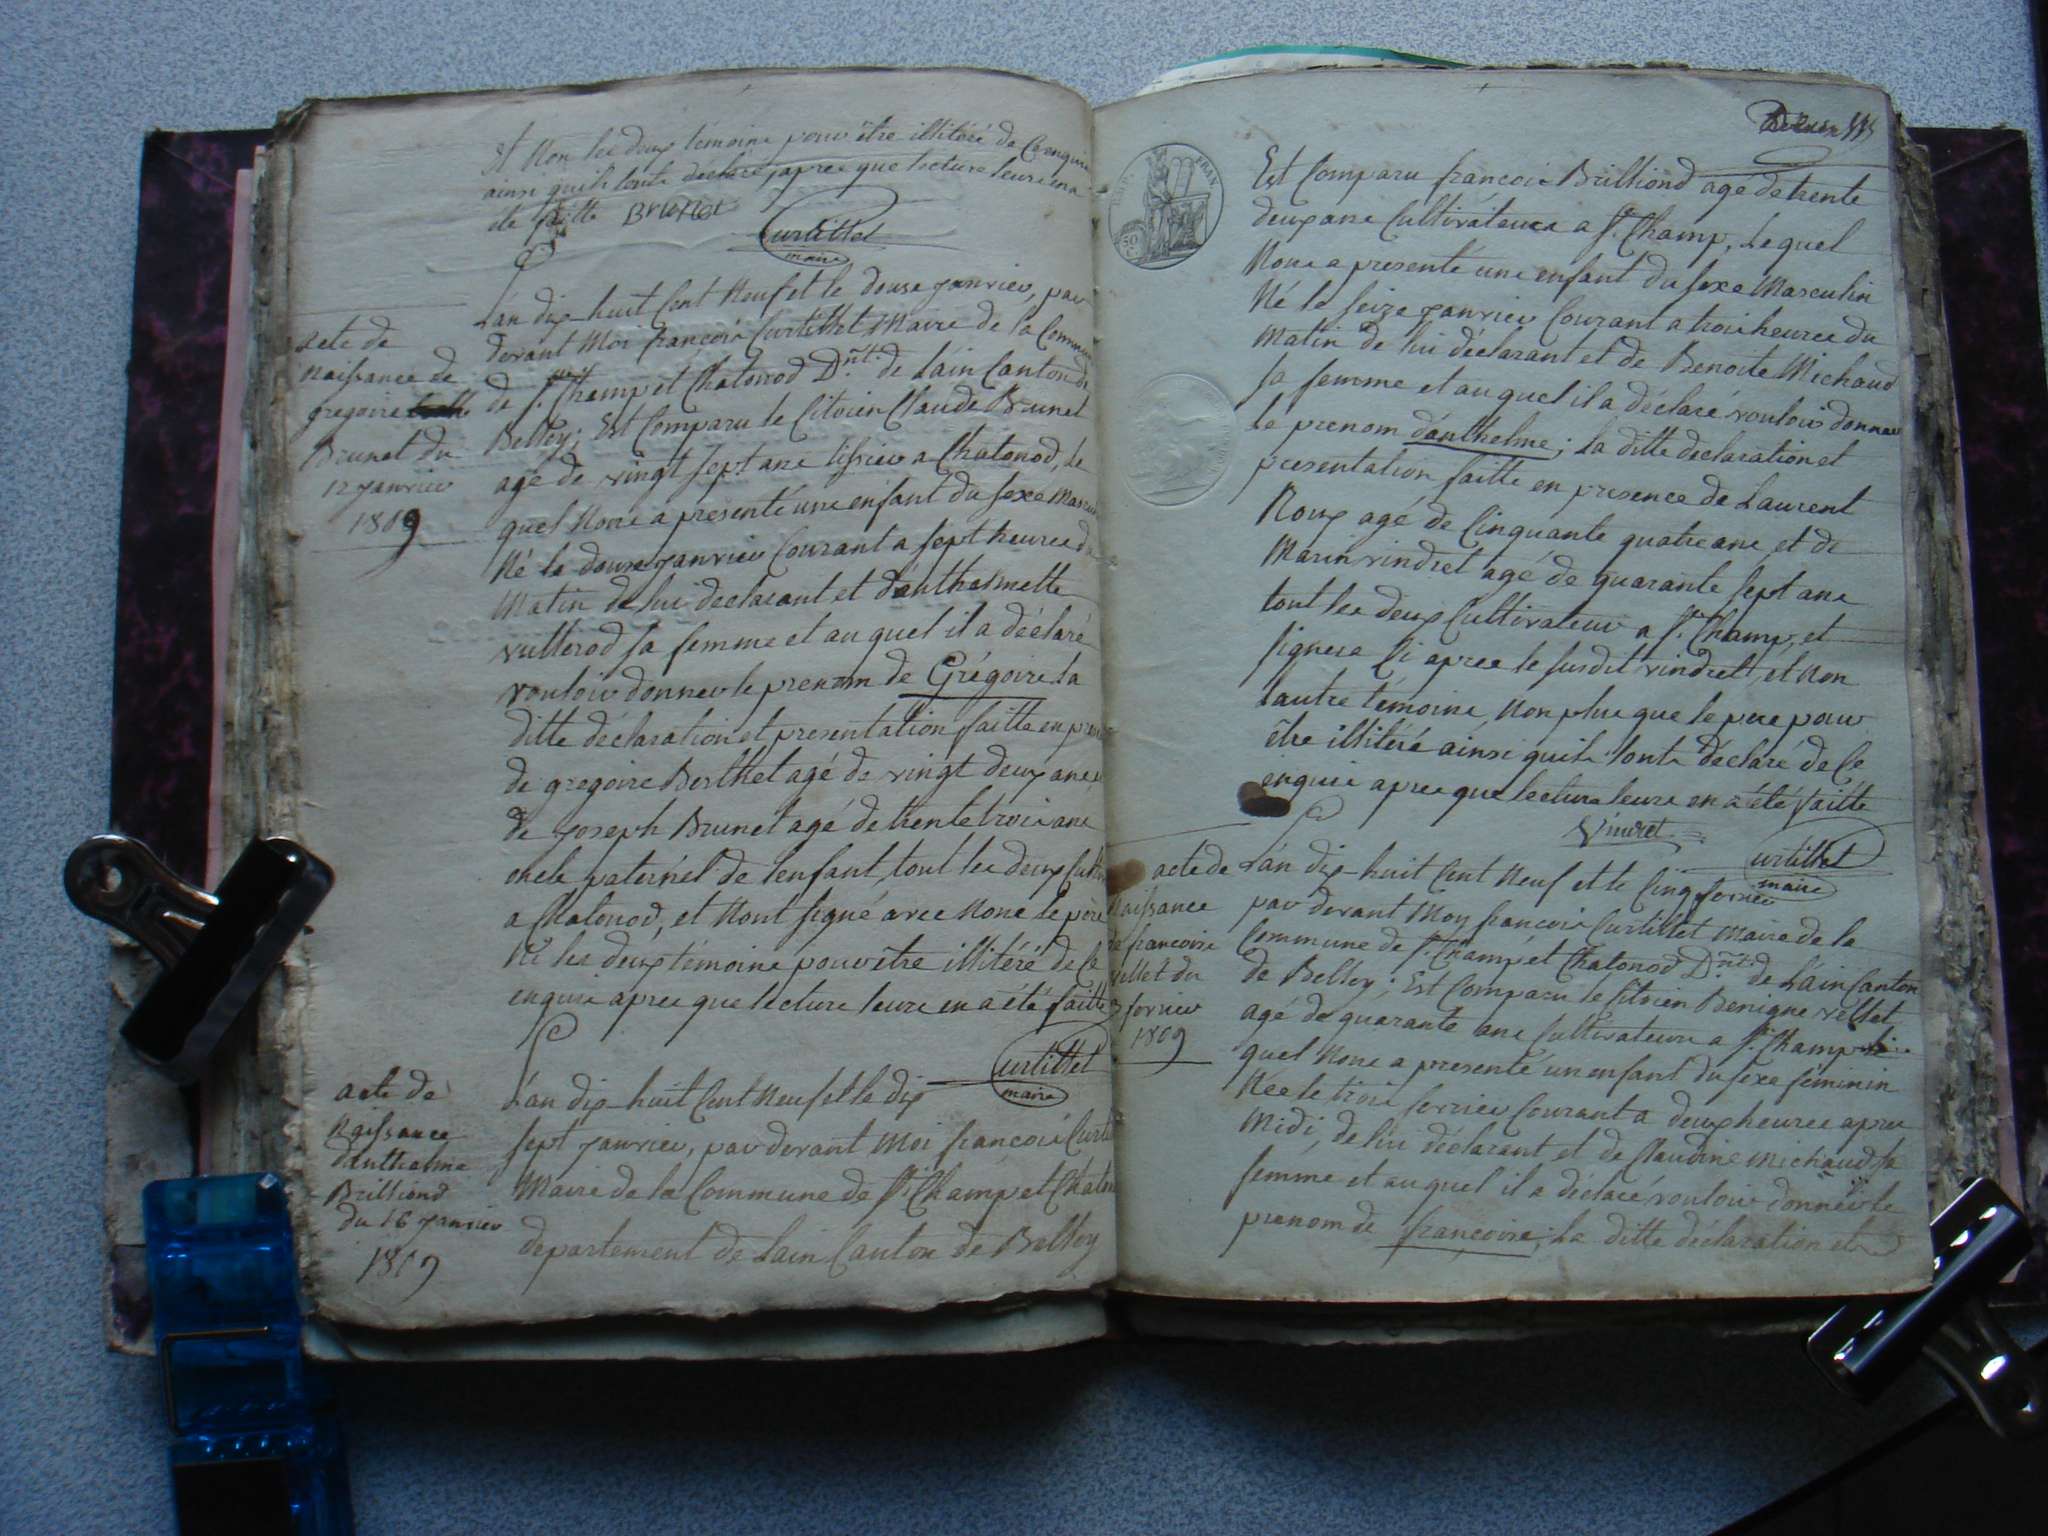 Et Non les deux témoins pour être illitéré de Ce enquis
ainsi quils lonts déclaré, apres que lecture leurs en a
été faitte Brunet
Curtillet
maire
Acte de
Naissance de
gregoire
Brunet du
12 janvier
1809
Lán dix-huit Cent Neuf et le douse janvier, par
devant Moi françois Curtillet Maire de la Commune
de St. Champ et Chatonod Dnt. de Láin Canton de
Belley; Est Comparu le Citoien Claude Brunet
agé de vingt sept ans tissier a Chatonod, le
quel Nous a presenté une enfant du sexe Mascu
Né le douse janvier Courant a sept heures du
Matin de lui déclarant et dánthelmette
vullerod sa femme et au quel il a déclaré
vouloir donner le prenom de Grégoire la
ditte déclaration et presentation faitte en pres
de gregoire Berthet agé de vingt deux ans,
de joseph Brunet agé de trente trois ans
oncle paternel de lenfant, tout les deux Cultiv
a Chatonod, et Nont signé avec Nous le père
Ni les deux témoins pour être illitéré de Ce
enquis apres que lecture leurs en a été faitte
Curtillet
maire
acte de
Naissance
dánthelme
Brilliond
du 16 janvier
1809
Lán dix-huit Cent Neuf et le dix
sept janvier, par devant Moi françois Curti
Maire de la Commune de St. Champ et Chaton
departement de Lain Canton de Belley
IMP.
FRAN.
50
C.
Est Comparu françois Brilliond agé de trente
deux ans Cultivateur a St. Champ, Le quel
Nous a presenté une enfant du sexe Masculin
Né le seize janvier Courant a trois heures du
Matin de lui déclarant et de Benoite Michaud
sa femme et au quel il a déclaré vouloir donner
le prenom dánthelme; la ditte déclaration et
presentation faitte en presence de Laurent
Roux agé de Cinquante quatre ans et de
Marin vindret agé de quarante sept ans
tout les deux Cultivateur a St. Champ, et
signera Ci apres le susdit vindret, et Non
lautre témoins, Non plus que le pere pour
être illitéré ainsi quils lonts déclaré de Ce
enquis apres que lecture leurs en a été faitte
Vindret
Curtillet
maire
acte de
Naissance
de francoise
vellet du
3 fevrier
1809
Lán dix-huit Cent Neuf et le Cinq fevrier
par devant Moy françois Curtillet Maire de la
Commune de St. Champ et Chatonod Dnt. de Láin Canton
de Belley; Est Comparu le Citoien Benigne vellet
agé de quarante ans Cultivateur a St. Champ le
quel Nous a presenté un enfant du sexe feminin
Née le trois fevrier Courant a deux heures apres
Midi, de lui déclarant et de Claudine Michaud sa
femme et au quel il a déclaré vouloir donner le
prenom de françoise; la ditte déclaration et